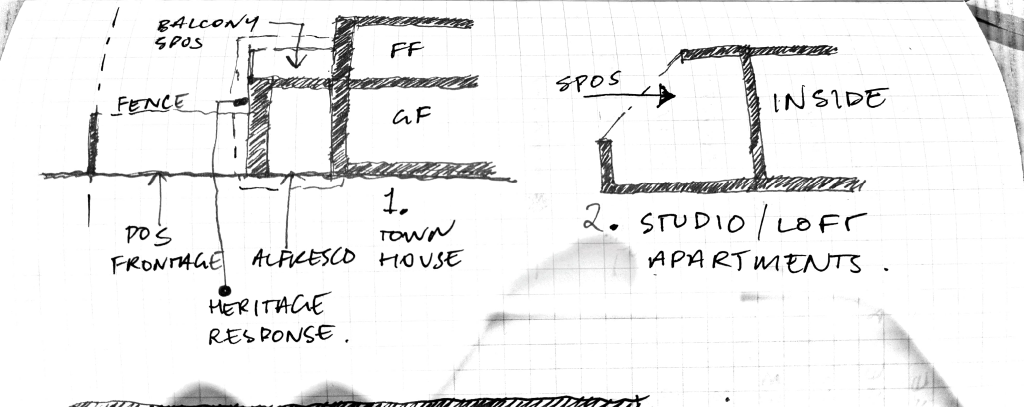 BALCONY
SPOS
FF
FENCE
GF
1.
TOWN
HOUSE
POS
FRONTAGE
ALFRESCO
HERITAGE
RESPONSE.
SPOS
INSIDE
2. STUDIO/LOFT
APARTMENTS.